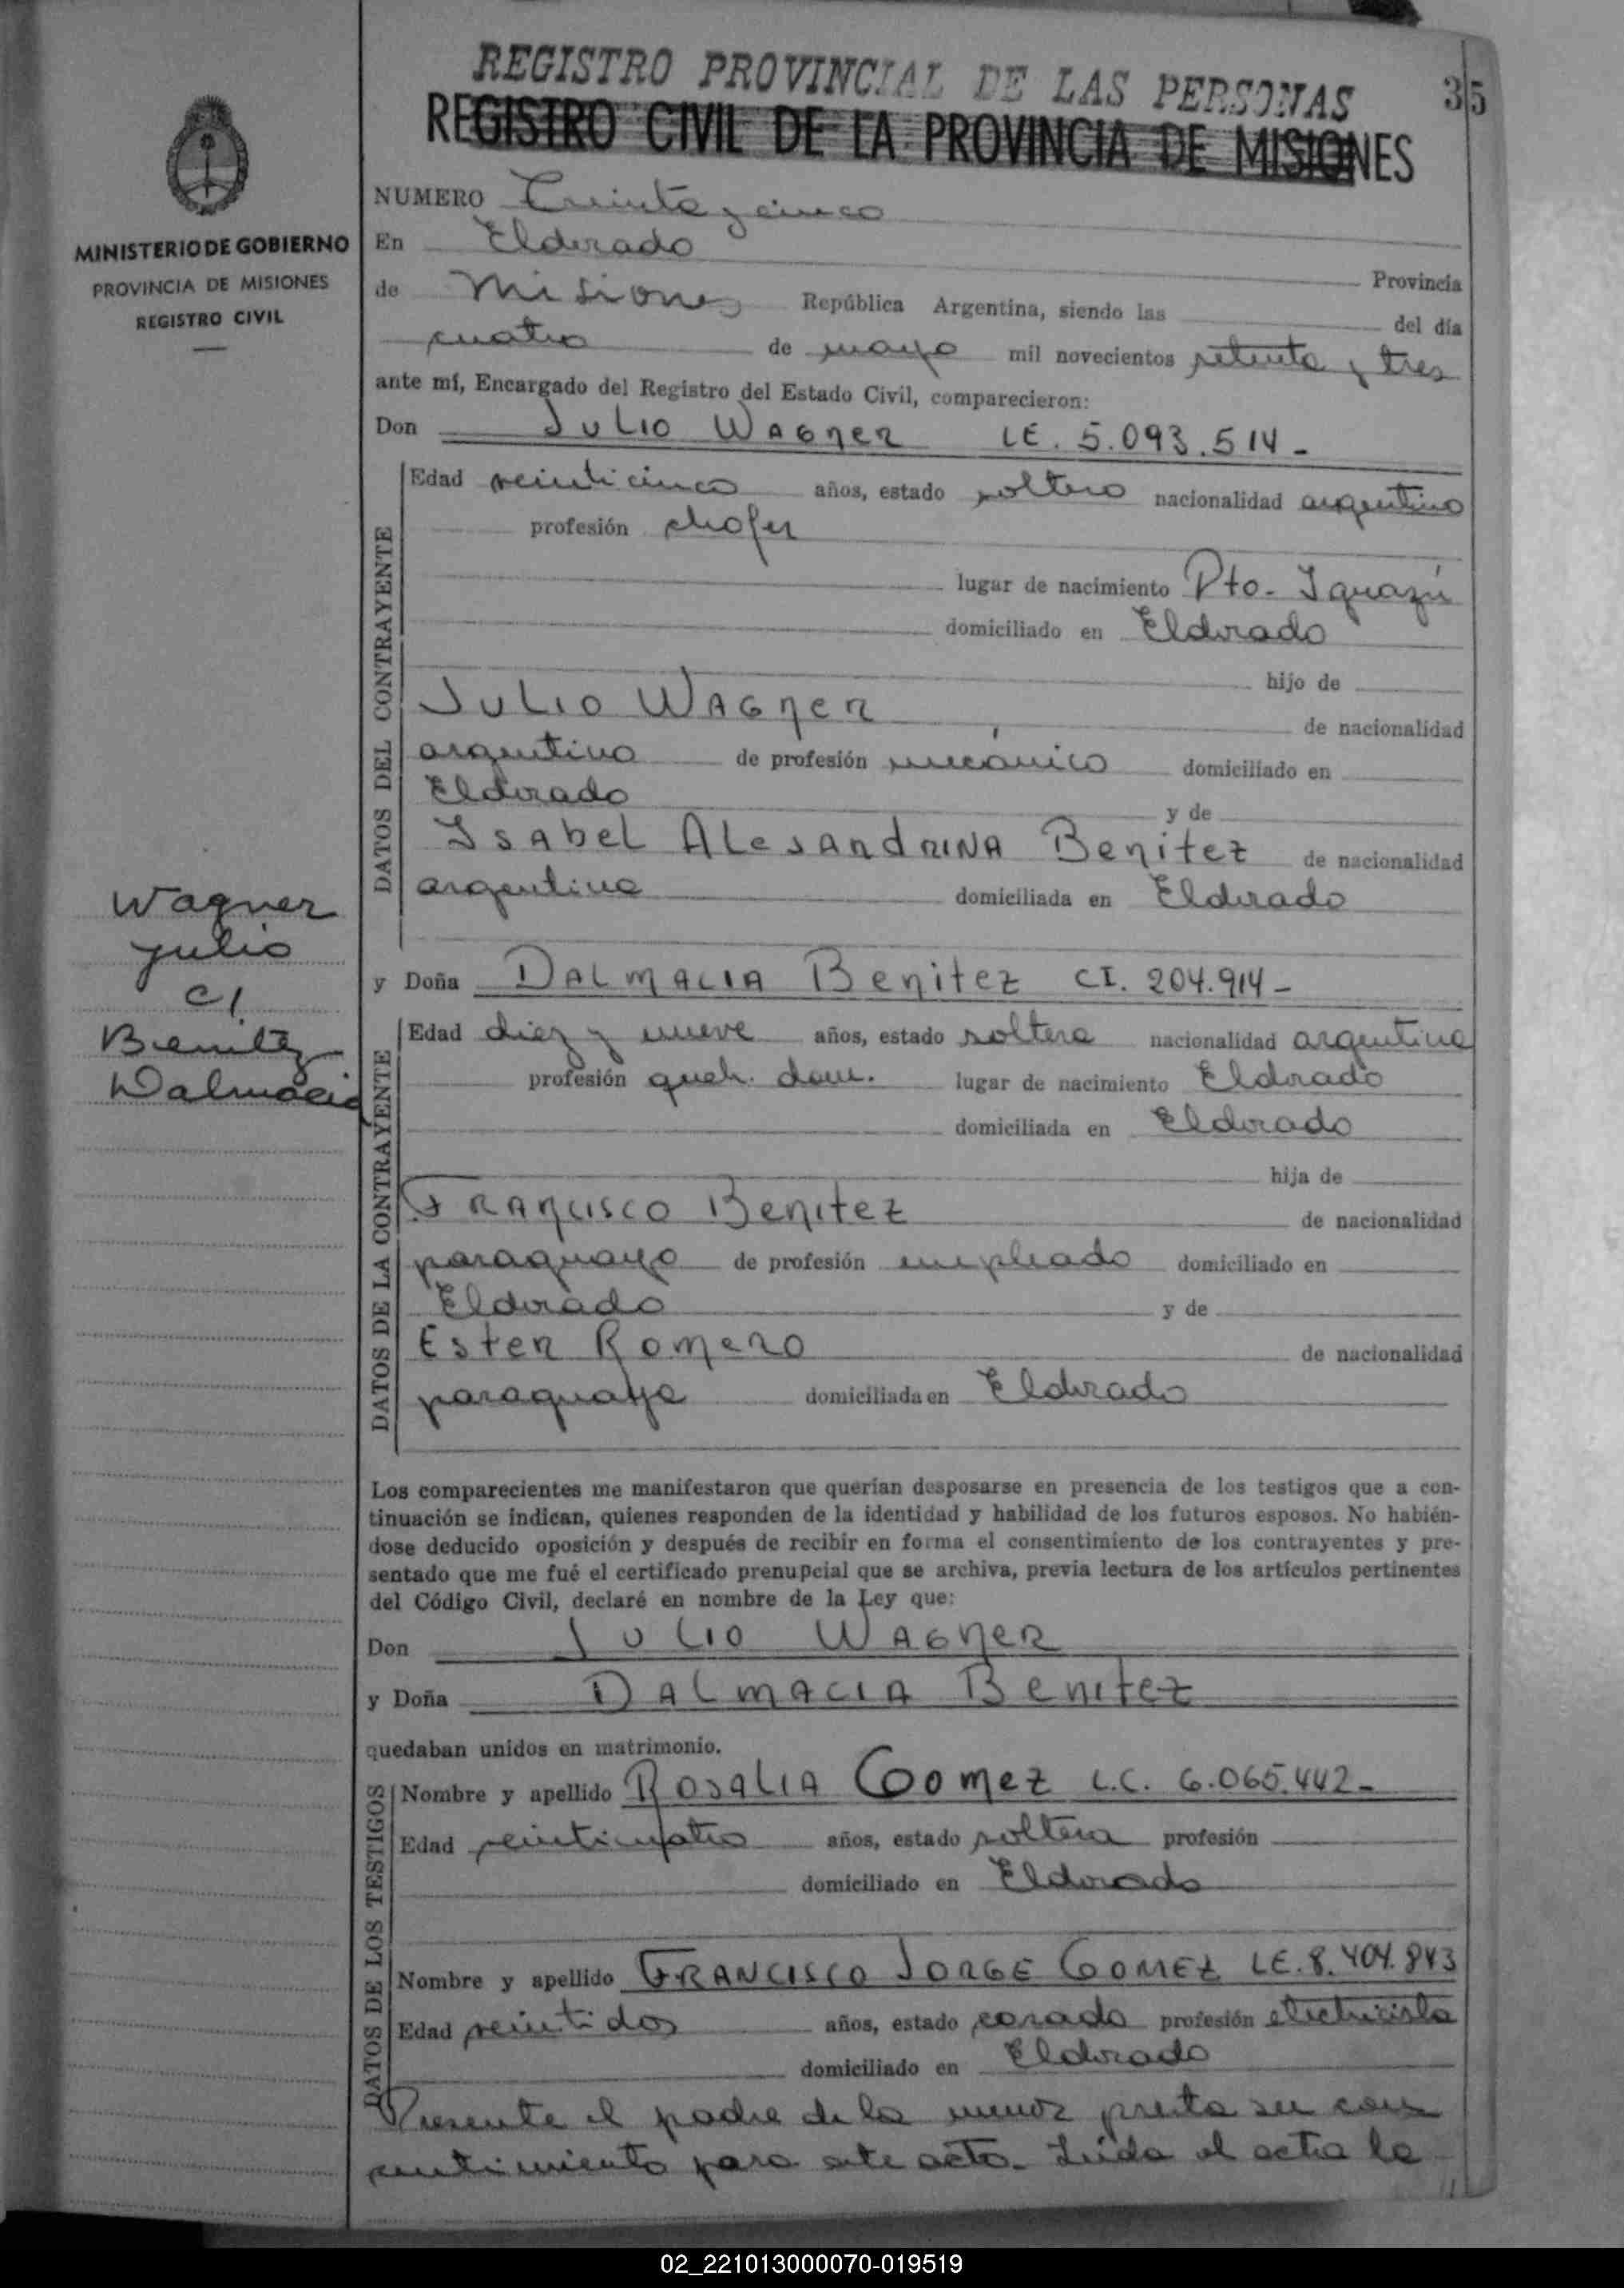 REGISTRO PROVINCIAL DE LAS PERSONAS
35
REGISTRO CIVIL DE LA PROVINCIA DE MISIONES
MINISTERIO DE GOBIERNO
PROVINCIA DE MISIONES
REGISTRO CIVIL
NUMERO Treinta y cinco
En Eldorado Provincia
de Misiones República Argentina, siendo las del día
cuatro de mayo mil novecientos setenta y tres
ante mí, Encargado del Registro del Estado Civil, comparecieron:
Don Julio Wagner LE. 5.093.514-
DATOS DEL CONTRAYENTE
Edad veinticinco años, estado soltero nacionalidad argentino
profesión chofer
lugar de nacimiento Pto. Iguazú
domiciliado en Eldorado
hijo de
Julio Wagner de nacionalidad
argentino de profesión mecánico domiciliado en
Eldorado y de
Isabel Alesandrina Benitez de nacionalidad
argentina domiciliada en Eldorado
Wagner
Julio
c/.
Benitez
Dalmacia
y Doña Dalmacia Benitez CI. 204.914-
DATOS DE LA CONTRAYENTE
Edad diez y nueve años, estado soltera nacionalidad argentina
profesión queh. dom. lugar de nacimiento Eldorado
domiciliada en Eldorado
hija de
Francisco Benitez de nacionalidad
paraguayo de profesión empleado domiciliado en
Eldorado y de
Ester Romero de nacionalidad
paraguaya domiciliada en Eldorado
Los comparecientes me manifestaron que querían desposarse en presencia de los testigos que a con-
tinuación se indican, quienes responden de la identidad y habilidad de los futuros esposos. No habién-
dose deducido oposición y después de recibir en forma el consentimiento de los contrayentes y pre-
sentado que me fué el certificado prenupcial que se archiva, previa lectura de los artículos pertinentes
del Código Civil, declaré en nombre de la Ley que:
Don Julio Wagner
y Doña Dalmacia Benitez
quedaban unidos en matrimonio.
DATOS DE LOS TESTIGOS
Nombre y apellido Rosalia Gomez L.C. 6.065.442-
Edad veinticuatro años, estado soltera profesión
domiciliado en Eldorado
Nombre y apellido Francisco Jorge Gomez LE. 8.404.843
Edad veintidos años, estado casado profesión electricista
domiciliado en Eldorado
Presente el padre de la menor presta su con
sentimiento para este acto. Leida el acta la
02_221013000070-019519